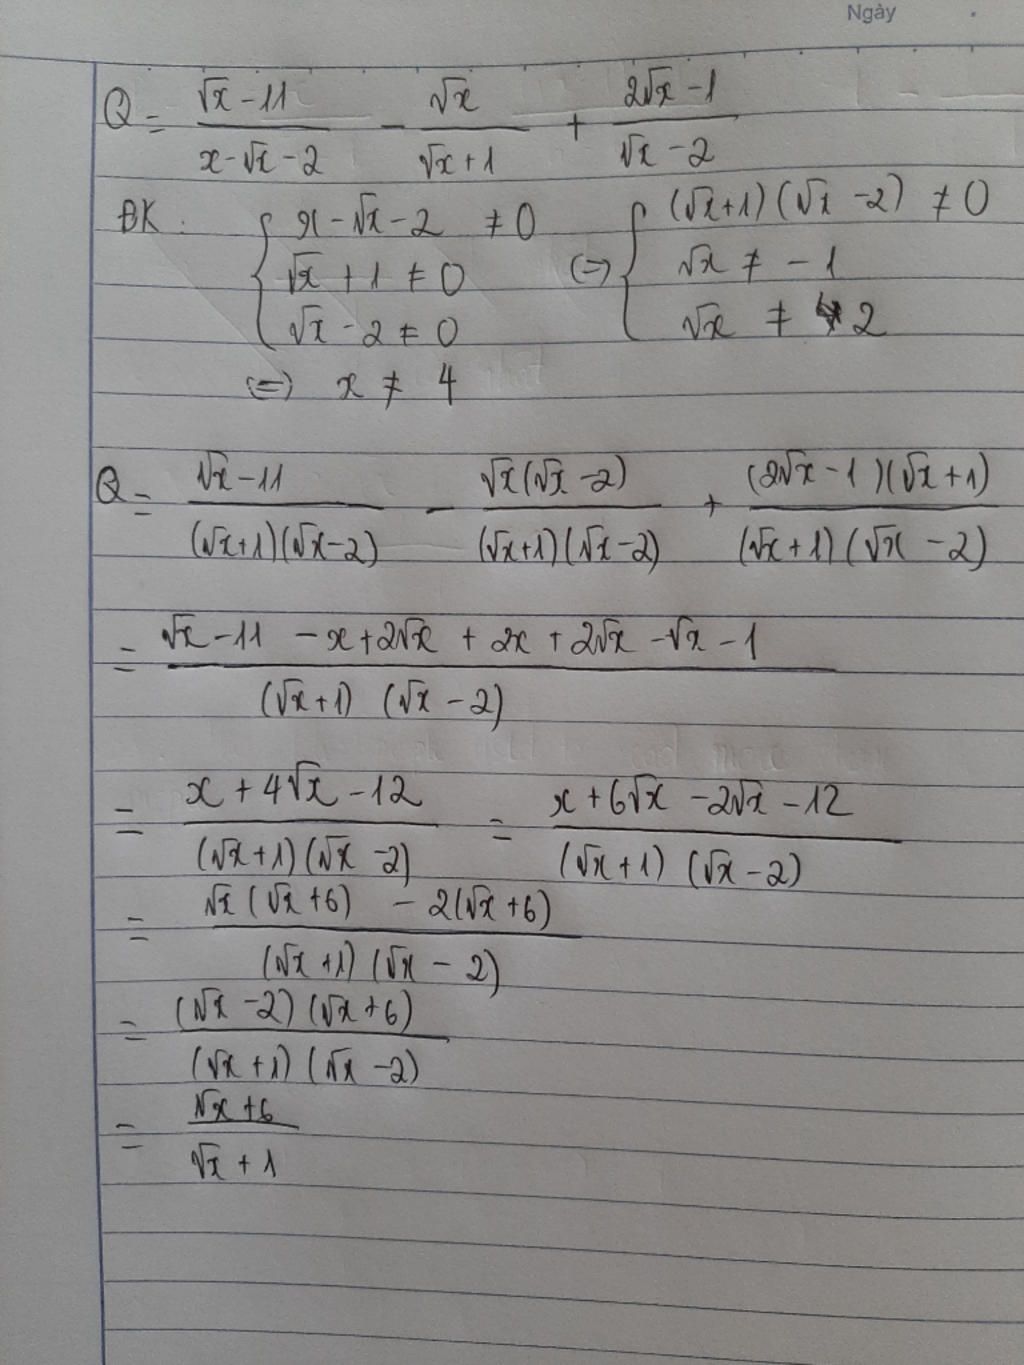 Ngày
Q = (√x - 11)/(x - √x - 2) - √x/(√x + 1) + (2√x - 1)/(√x - 2)
ĐK: { x - √x - 2 ≠ 0 (=) { (√x + 1)(√x - 2) ≠ 0
√x + 1 ≠ 0 √x ≠ -1
√x - 2 ≠ 0 √x ≠ 2
(=) x ≠ 4
Q = (√x - 11)/((√x + 1)(√x - 2)) - √x(√x - 2)/((√x + 1)(√x - 2)) + (2√x - 1)(√x + 1)/((√x + 1)(√x - 2))
= (√x - 11 - x + 2√x + 2x + 2√x - √x - 1)/((√x + 1)(√x - 2))
= (x + 4√x - 12)/((√x + 1)(√x - 2)) = (x + 6√x - 2√x - 12)/((√x + 1)(√x - 2))
= (√x(√x + 6) - 2(√x + 6))/((√x + 1)(√x - 2))
= (√x - 2)(√x + 6)/((√x + 1)(√x - 2))
= (√x + 6)/(√x + 1)